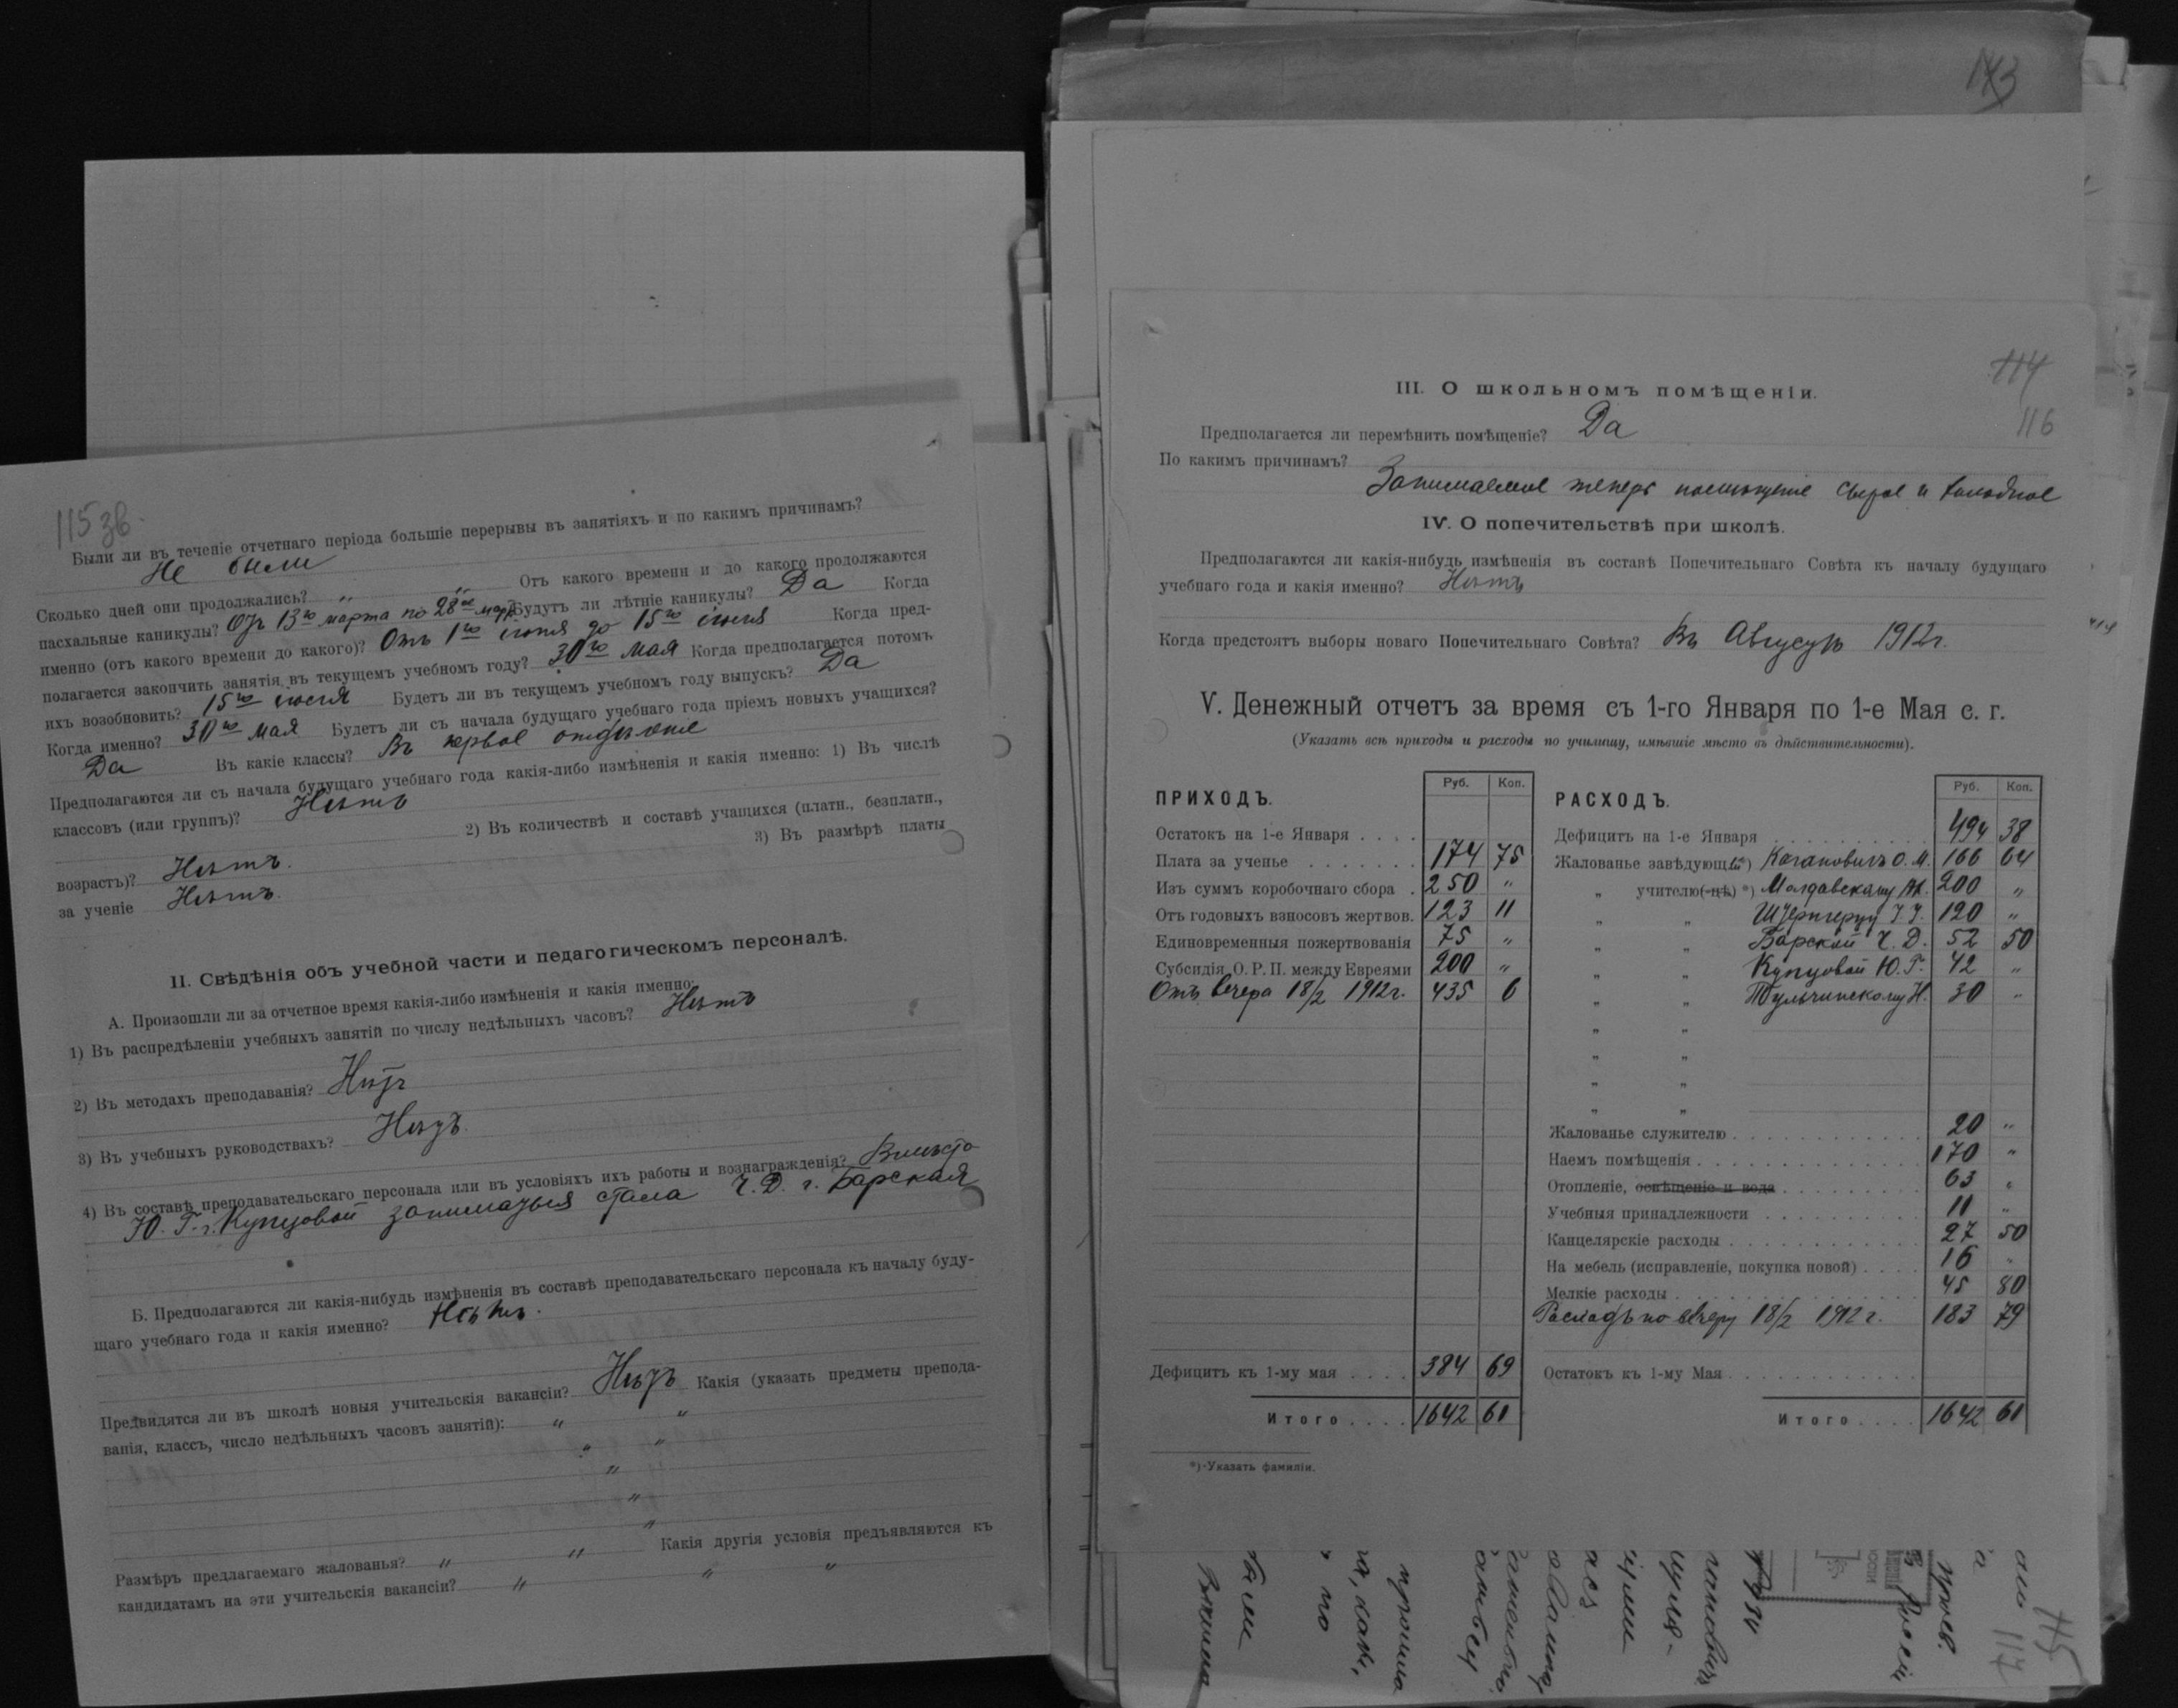 115 зв.
Были ли въ теченіе отчетнаго періода большіе перерывы въ занятіяхъ и по какимъ причинамъ?
Не были
Сколько дней они продолжались? " " Отъ какого времени и до какого продолжаются
пасхальные каникулы? Отъ 13го марта по 28ое марта Будутъ ли лѣтніе каникулы? Да Когда
именно (отъ какого времени до какого)? Отъ 1го іюня до 15го іюля Когда пред-
полагается закончить занятія въ текущемъ учебномъ году? 30го мая Когда предполагается потомъ
ихъ возобновить? 15го іюля Будетъ ли въ текущемъ учебномъ году выпускъ? Да
Когда именно? 30го мая Будетъ ли съ начала будущаго учебнаго года пріемъ новыхъ учащихся?
Да Въ какіе классы? Въ первое отдѣленіе
Предполагаются ли съ начала будущаго учебнаго года какія-либо измѣненія и какія именно: 1) Въ числѣ
классовъ (или группъ)? Нѣтъ
2) Въ количествѣ и составѣ учащихся (платн., безплатн.,
возрастъ)? Нѣтъ. 3) Въ размѣрѣ платы
за ученіе Нѣтъ.
II. Свѣдѣнія объ учебной части и педагогическомъ персоналѣ.
А. Произошли ли за отчетное время какія-либо измѣненія и какія именно:
1) Въ распредѣленіи учебныхъ занятій по числу недѣльныхъ часовъ? Нѣтъ
2) Въ методахъ преподаванія? Нѣтъ
3) Въ учебныхъ руководствахъ? Нѣтъ.
4) Въ составѣ преподавательскаго персонала или въ условіяхъ ихъ работы и вознагражденія? Вмѣсто
Ю. Г. г. Купцовой заниматься стала Ч. Д. г. Барская
Б. Предполагаются ли какія-нибудь измѣненія въ составѣ преподавательскаго персонала къ началу буду-
щаго учебнаго года и какія именно? Нѣтъ.
Предвидятся ли въ школѣ новыя учительскія вакансіи? Нѣтъ Какія (указать предметы препода-
ванія, классъ, число недѣльныхъ часовъ занятій): " "
" "
"
"
"
Размѣръ предлагаемаго жалованья? " " Какія другія условія предъявляются къ
кандидатамъ на эти учительскія вакансіи? " " "
113
114
116
III. О школьномъ помѣщеніи.
Предполагается ли перемѣнить помѣщеніе? Да
По какимъ причинамъ?
Занимаемое теперь помѣщеніе сырое и холодное
IV. О попечительствѣ при школѣ.
Предполагаются ли какія-нибудь измѣненія въ составѣ Попечительнаго Совѣта къ началу будущаго
учебнаго года и какія именно? Нѣтъ
Когда предстоятъ выборы новаго Попечительнаго Совѣта? Въ Августѣ 1912г.
V. Денежный отчетъ за время съ 1-го Января по 1-е Мая с. г.
(Указать всѣ приходы и расходы по училищу, имѣвшіе мѣсто въ дѣйствительности).
ПРИХОДЪ. Руб. Коп.
Остатокъ на 1-е Января
Плата за ученье 174 75
Изъ суммъ коробочнаго сбора 250 "
Отъ годовыхъ взносовъ жертвов. 123 11
Единовременныя пожертвованія 75 "
Субсидія О. Р. П. между Евреями 200 "
Отъ вечера 18/2 1912г. 435 6
Дефицитъ къ 1-му мая 384 69
Итого 1642 61
РАСХОДЪ. Руб. Коп.
Дефицитъ на 1-е Января 494 38
Жалованье завѣдующ. *) Каганович О. М. 166 64
" учителю(-цѣ) *) Молдавскому 200 "
" " Штернгерцу 120 "
" " Барской Ч. Д. 52 50
" " Купцовой Ю. Г. 42 "
" " Тульчинскому Н. 30 "
" "
" "
" "
" "
Жалованье служителю 20 "
Наемъ помѣщенія 170 "
Отопленіе, освѣщеніе и вода 63 "
Учебныя принадлежности 11 "
Канцелярскіе расходы 27 50
На мебель (исправленіе, покупка новой) 16 "
Мелкіе расходы 45 80
Расходъ по вечеру 18/2 1912 г. 183 79
Остатокъ къ 1-му Мая
Итого 1642 61
*) Указать фамиліи.
115
117